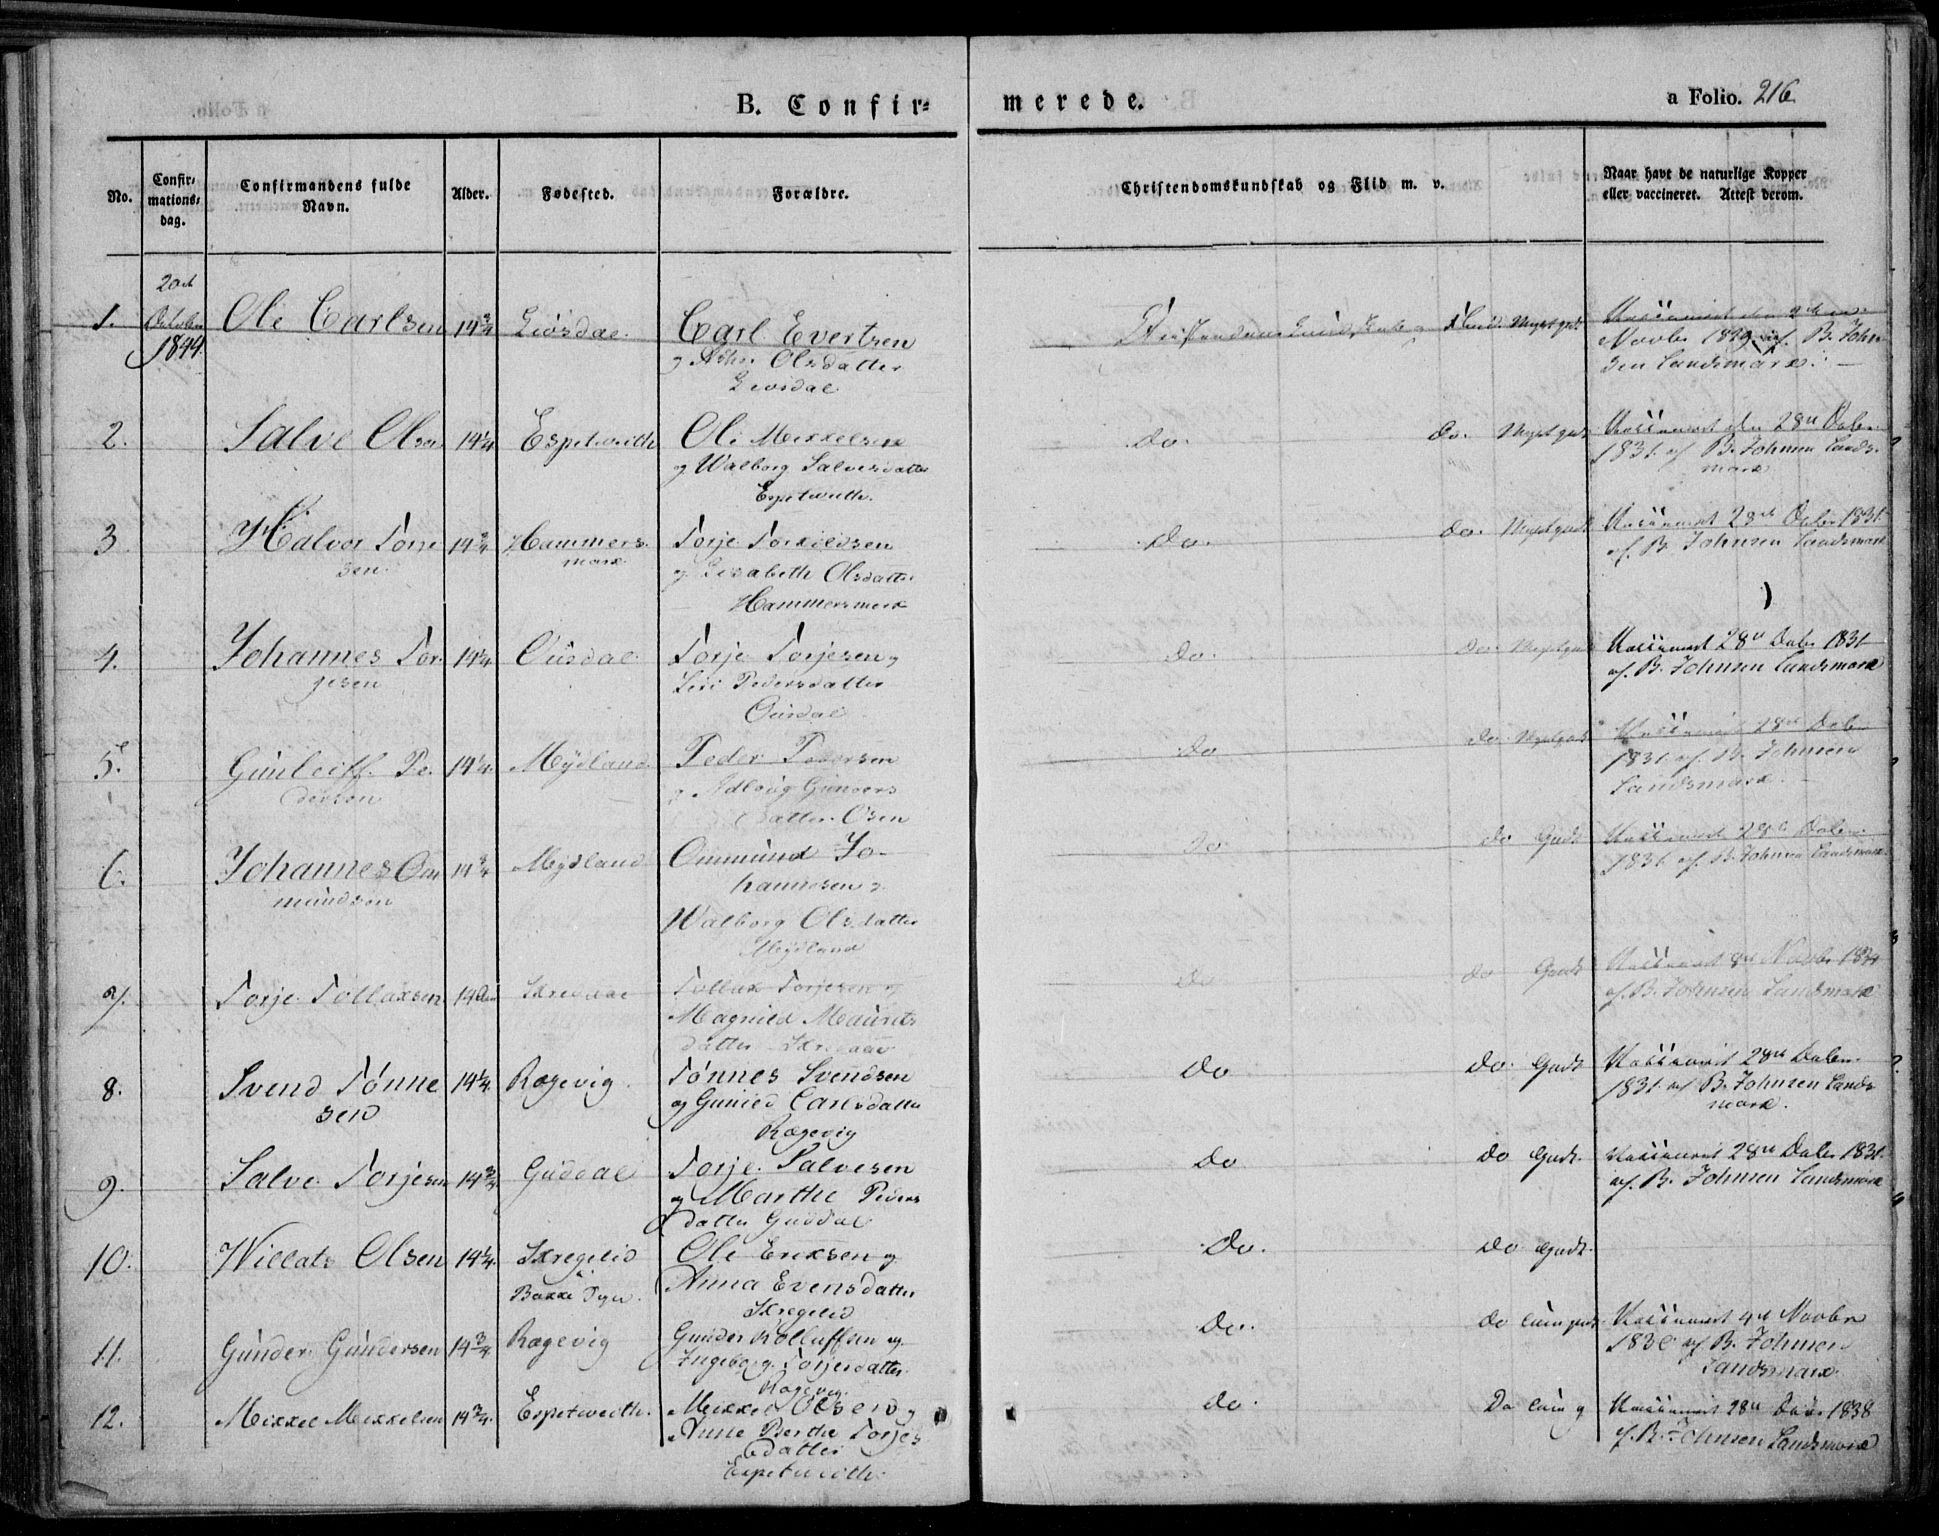 B. Confir=
merede.
a Folio. 216
No.
Confir=
mations=
dag.
Confirmandens fulde
Navn.
Alder.
Fødested.
Forældre.
Christendomskundskab og Flid m. v.
Naar havt de naturlige Kopper
eller vaccineret. Attest derom.
1.
October
1844
Ole Carlsen
14 3/4
Liosdal
Carl Evertsen
og Olsdatter
Liosdal
Meget godt
Novbr B. John
sen Landsmark
2.
Salve Olsen
14 1/4
Espetveith
Ole Mikkelsen
og Walborg Salvesdatter
Espetveith
Do.
Do. Meget godt
Vaccineret den 28de
1831 af B. Johnsen Lands
mark
3
Halvor Torje
sen
14 3/4
Hammers
mark
Torje Torkildsen
og Lisabeth Olsdatter
Hammersmark
Do.
Do. Meget godt
Vaccineret 28de 1831
af B. Johnsen Landsmark
4.
Johannes Tor
gesen
14 1/4
Ousdal
Torje Torjesen og
Siri Pedersdatter
Ousdal
Do.
Do. Meget godt
Vaccineret 28de 1831
af B. Johnsen Landsmark
5.
Gunleiff Pe
dersen
14 1/4
Mydland
Peder Pedersen
og Gunders
datter
Do
Do. Meget godt
Vaccineret 28de
1831 af B. Johnsen
Landsmark
6.
Johannes Om
mundsen
14 3/4
Mydland
Ommund Jo-
hannesen og
Walborg Olsdatter
Mydland
Do
Do Godt
Vaccineret 28de
1831 af B. Johnsen Landsmark
7.
Torje Tollaksen
14
Skregaae
Tollak Torjesen og
Magnild Maurits
datter Skregaae
Do
Do Godt
Vaccineret Novbr
af B. Johnsen Landsmark
8.
Svend Tønne
sen
14 1/4
Røgevig
Tønnes Svendsen
og Gunild Carlsdatter
Røgevig
Do
Do. Godt
Vaccineret 28de
1831 af B. Johnsen Lands
mark
9.
Salve Torjesen
14 3/4
Guddal
Torje Salvesen
og Marthe Peders
datter Guddal
Do
Do Godt.
Vaccineret 28de 1831
af B. Johnsen Landsmark
10.
Willats Olsen
14 1/4
Skregelid
Bakke
Ole Eriksen og
Anna Evensdatter
Skregelid
Do.
Do Godt.
11.
Gunder Gundersen
14 3/4
Røgevig
Gunder Rolluffsen og
Ingeborg Torjesdatter
Røgevig
Do.
Do
Vaccineret Novbr
af B. Johnsen
Landsmark
12.
Mikkel Mikkelsen
14 3/4
Espetveith
Mikkel Olsen og
Anne Berthe Torjes
datter
Espetveith
Do.
Do
Vaccineret 28de 1838
af B. Johnsen Landsmark